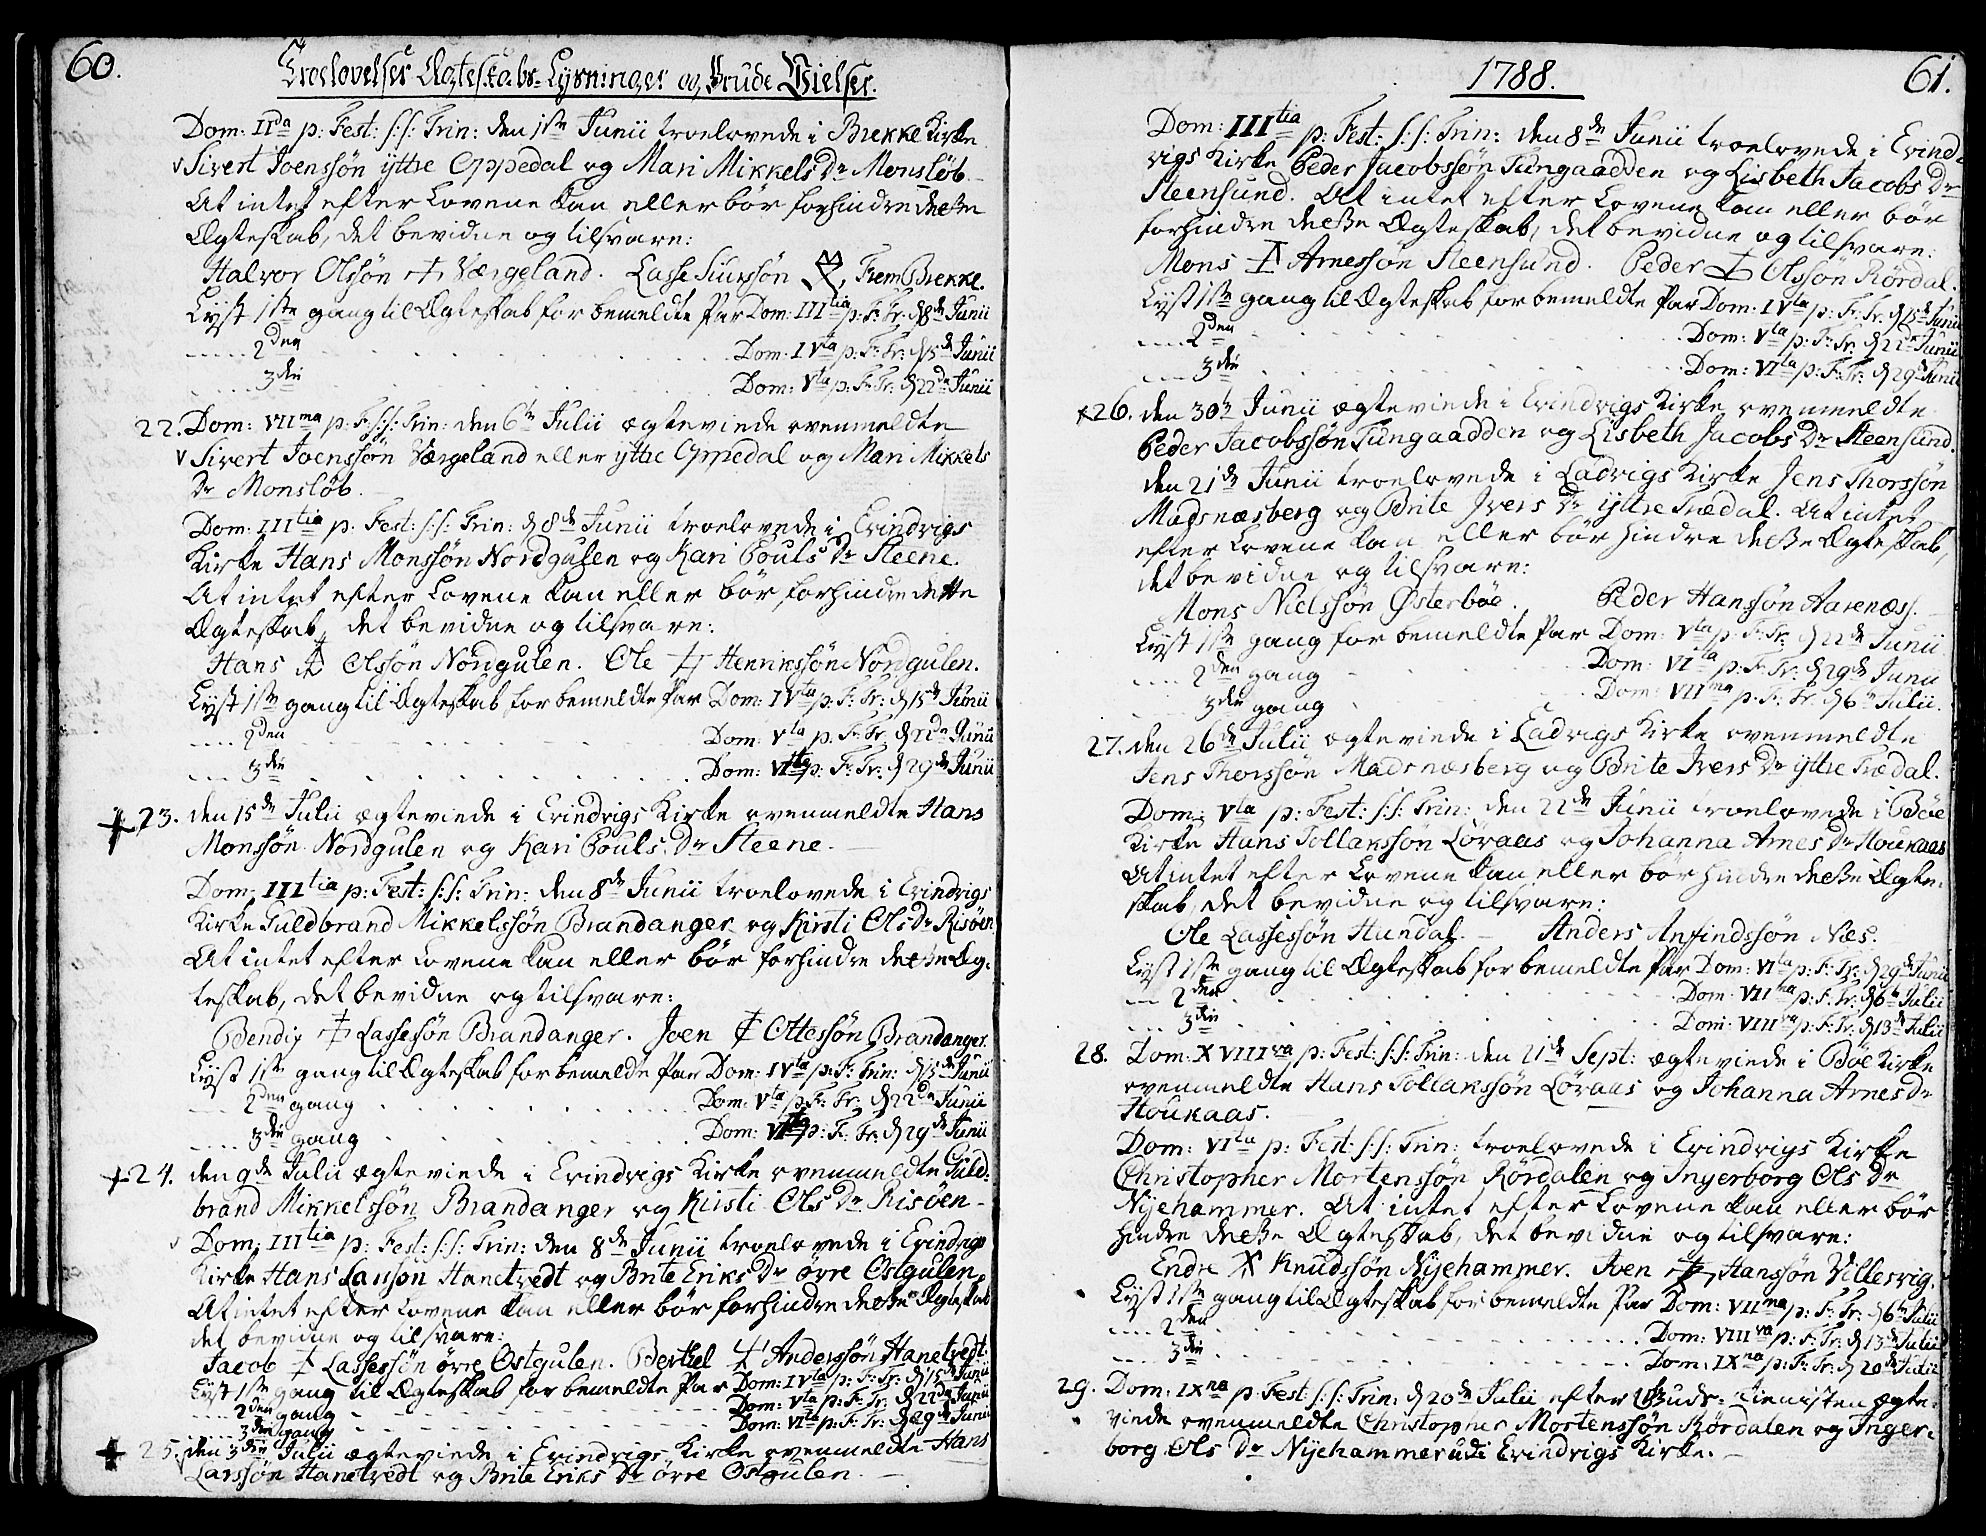 60.
Troelovelser Ægteskabs-Lysninger og Brude Vielser.
Dom: IIda p: Fest: S:S: Trin: den 1ste Junii troelovede i Brekke Kirke
v Sivert Joenssøn yttre Oppedal og Mari Mikkels Dr Monsløb.
At intet efter Lovene kan eller bør forhindre deße
Ægteskab, det bevidne og tilsvare:
Halvor Olssøn Værgeland. Lasse Siurssøn Frem Brekke.
Lyst 1ste gang til Ægteskab for bemeldte Par Dom: IIItia p: F: Tr: d 8de Junii
..... 2den . . . . Dom: IVta p: F: Tr: d 15de Junii
..... 3die . . . . Dom: Vta p: F: Tr: d 22de Junii
22. Dom: VIIma p: F: S:S: Trin: den 6te Julii ægteviede ovenmeldte
v Sivert Joenssøn Værgeland eller yttre Oppedal og Mari Mikkels
Dr Monsløb.
Dom: IIItia p: Fest: S:S: Trin: d 8de Junii troelovede i Evindvigs
Kirke Hans Monssøn Nordgulen og Kari Pouls Dr Steene.
At intet efter Lovene kan eller bør forhindre dette
Ægteskab, det bevidne og tilsvare:
Hans Olssøn Nordgulen. Ole Henrikssøn Nordgulen.
Lyst 1ste gang til Ægteskab for bemeldte Par Dom: IVta p: F: Tr: d 15de Junii
.... 2den . . . . Dom: Vta p: F: Tr: d 22de Junii
.... 3die . . . . Dom: VIta p: F: Tr: d 29de Junii
23. den 15de Julii ægteviede i Evindvigs Kirke ovenmeldte Hans
Monssøn Nordgulen og Kari Pouls Dr Steene.
Dom: IIItia p: Fest: S:S: Trin: den 8de Junii troelovede i Evindvigs
Kirke Guldbrand Mikkelssøn Brandanger og Kirsti Ols Dr Risøen
At intet efter Lovene kan eller bør forhindre deße Æg-
teskab, det bevidne og tilsvare:
Bendix Lassesøn Brandanger. Joen Ottessøn Brandanger.
Lyst 1ste gang til Ægteskab for bemeldte Par Dom: IVta p: F: Trin: d 15de Junii
.... 2den gang . . . . Dom: Vta p: F: Tr: d 22de Junii
.... 3die gang . . . . Dom: VIta p: F: Tr: d 29de Junii
24. den 9de Julii ægteviede i Evindvigs Kirke ovenmeldte Guld-
brand Mikkelssøn Brandanger og Kirsti Ols Dr Risøen
Dom: IIItia p: Fest: S:S: Trin: den 8de Junii troelovede i Evindvigs
Kirke Hans Larssøn Hanetvedt og Brite Eriks Dr øvre Ostgulen.
At intet efter Lovene kan eller bør forhindre deße Ægteskab
det bevidne og tilsvare:
Jacob Lassesøn øvre Ostgulen. Berthel Anderssøn Hanetvedt.
Lyst 1ste gang til Ægteskab for bemeldte Par Dom: IVta p: F: Tr: d 15de Junii
.... 2den gang . . . . Dom: Vta p: F: Tr: d 22de Junii
.... 3die gang . . . . Dom: VIta p: F: Tr: d 29de Junii
25. den 3die Julii ægteviede i Evindvigs Kirke ovenmeldte Hans
Larssøn Hanetvedt og Brite Eriks Dr øvre Ostgulen.
1788.
61.
Dom: IIItia p: Fest: S:S: Trin: den 8de Junii troelovede i Evind-
vigs Kirke Peder Jacobssøn Tungaadden og Lisbeth Jacobs Dr
Steensund. At intet efter Lovene kan eller bør
forhindre deße Ægteskab, det bevidne og tilsvare:
Mons Arnessøn Steensund. Peder Olssøn Rördal.
Lyst 1ste gang til Ægteskab for bemeldte Par Dom: IVta p: F: Tr: d 15de Junii
.... 2den . . . . Dom: Vta p: F: Tr: d 22de Junii
.... 3die . . . . Dom: VIta p: F: Tr: d 29de Junii
26. den 30te Junii ægteviede i Evindvigs Kirke ovenmeldte
Peder Jacobssøn Tungaadden og Lisbeth Jacobs Dr Steensund.
den 21de Junii troelovede i Ladvigs Kirke Jens Thorssøn
Madsnæsberg og Brite Ivers Dr yttre Trædal. At intet
efter Lovene kan eller bør hindre deße Ægteskab,
det bevidne og tilsvare:
Mons Nielssøn Østerbøe. Peder Hanssøn Aarenæs.
Lyst 1ste gang for bemeldte Par Dom: Vta p: F: Tr: d 22de Junii
.... 2den gang . . . . Dom: VIta p: F: Tr: d 29de Junii
3die gang . . . . Dom: VIIma p: F: Tr: d 6te Julii.
27. den 26de Julii ægteviede i Ladvigs Kirke ovenmeldte
Jens Thorssøn Madsnæsberg og Brite Ivers Dr yttre Trædal.
Dom: Vta p: Fest: S:S: Trin: den 22de Junii troelovede i Bøe
Kirke Hans Tollakssøn Löraas og Johanna Arnes Dr Houkaas
At intet efter Lovene kan eller bør hindre deße Ægte-
skab, det bevidne og tilsvare:
Ole Lassessøn Hundal. – Anders Anfindssøn Næs.
Lyst 1ste gang til Ægteskab for bemeldte Par Dom: VIta p: F: Tr: d 29de Junii
.... 2den . . . . Dom: VIIma p: F: Tr: d 6te Julii
.... 3die . . . . Dom: VIIIva p: F: Tr: d 13de Julii
28. Dom: XVIIIva p: Fest: S:S: Trin: den 21de Sept: ægteviede i Bøe Kirke
ovenmeldte Hans Tollakssøn Löraas og Johanna Arnes Dr
Houkaas.
Dom: VIta p: Fest: S:S: Trin: troelovede i Evindvigs Kirke
Christopher Mortenssøn Rördalen og Ingerborg Ols Dr
Nijehammer. At intet efter Lovene kan eller bør
hindre deße Ægteskab, det bevidne og tilsvare:
Endre Knudssøn Nijehammer. Iven Hanssøn Villesvig.
Lyst 1ste gang til Ægteskab for bemeldte Par Dom: VIIma p: F: Tr: d 6te Julii
.... 2den . . . . Dom: VIIIva p: F: Tr: d 13de Julii
.... 3die . . . . Dom: IXna p: F: Tr: d 20de Julii
29. Dom: IXna p: Fest: S:S: Trin: d 20de Julii efter Guds-Tienisten ægte-
viede ovenmeldte Christopher Mortenssøn Rördalen og Inger-
borg Ols Dr Nijehammer udi Evindvigs Kirke.